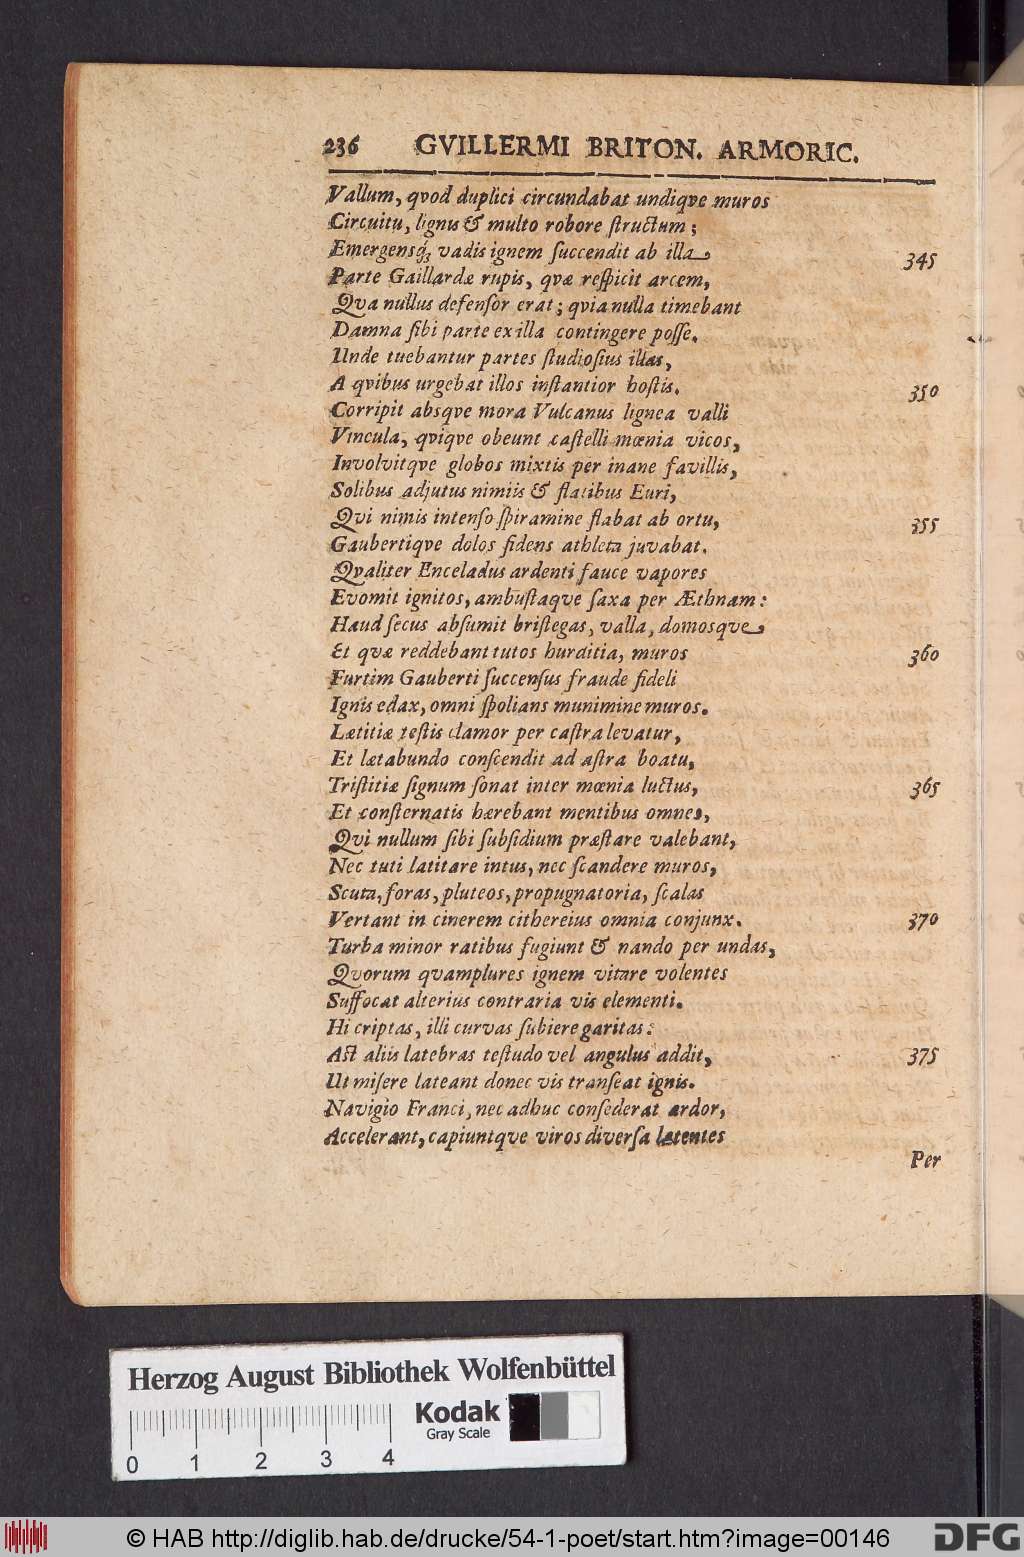 236 GVILLERMI BRITON. ARMORIC.
Vallum, qvod duplici circundabat undiqve muros
Circuitu, lignis & multo robore ſtructum;
Emergensq́; vadis ignem ſuccendit ab illa 345
Parte Gaillardæ rupis, qvæ reſpicit arcem,
Qva nullus defenſor erat; qvia nulla timebant
Damna ſibi parte ex illa contingere poſſe.
Unde tuebantur partes ſtudioſius illas,
A qvibus urgebat illos inſtantior hoſtis. 350
Corripit absqve mora Vulcanus lignea valli
Vincula, qviqve obeunt caſtelli mœnia vicos,
Involvitqve globos mixtis per inane favillis,
Solibus adjutus nimiis & flatibus Euri,
Qvi nimis intenſo ſpiramine flabat ab ortu, 355
Gaubertiqve dolos fidens athleta juvabat.
Qvaliter Enceladus ardenti fauce vapores
Evomit ignitos, ambuſtaque ſaxa per Æthnam:
Haud ſecus abſumit briſtegas, valla, domosque
Et qvæ reddebant tutos hurditia, muros 360
Furtim Gauberti ſuccenſus fraude fideli
Ignis edax, omni ſpolians munimine muros.
Lætitiæ teſtis clamor per caſtra levatur,
Et lætabundo conſcendit ad aſtra boatu,
Triſtitiæ ſignum ſonat inter mœnia luctus, 365
Et conſternatis hærebant mentibus omnes,
Qvi nullum ſibi ſubſidium præſtare valebant,
Nec tuti latitare intus, nec ſcandere muros,
Scuta, foras, pluteos, propugnatoria, ſcalas
Vertant in cinerem cithereius omnia conjunx. 370
Turba minor ratibus fugiunt & nando per undas,
Qvorum qvamplures ignem vitare volentes
Suffocat alterius contraria vis elementi.
Hi criptas, illi curvas ſubiere garitas:
Aſt aliis latebras teſtudo vel angulus addit, 375
Ut miſere lateant donec vis tranſeat ignis.
Navigio Franci, nec adhuc conſederat ardor,
Accelerant, capiuntqve viros diverſa latentes
Per
Herzog August Bibliothek Wolfenbüttel
Kodak
Gray Scale
0 1 2 3 4
© HAB http://diglib.hab.de/drucke/54-1-poet/start.htm?image=00146
DFG